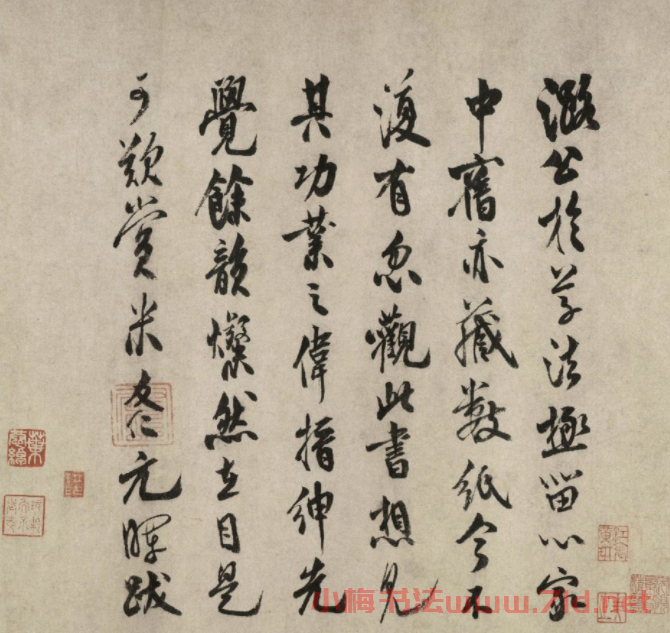 潞公於草法極留心家
中舊亦藏數紙今不
復有忽觀此書想見
其功業之偉搢紳先
覺餘韻燦然在目是
可歎賞米友仁元暉跋
小梅书法www.7ld.net